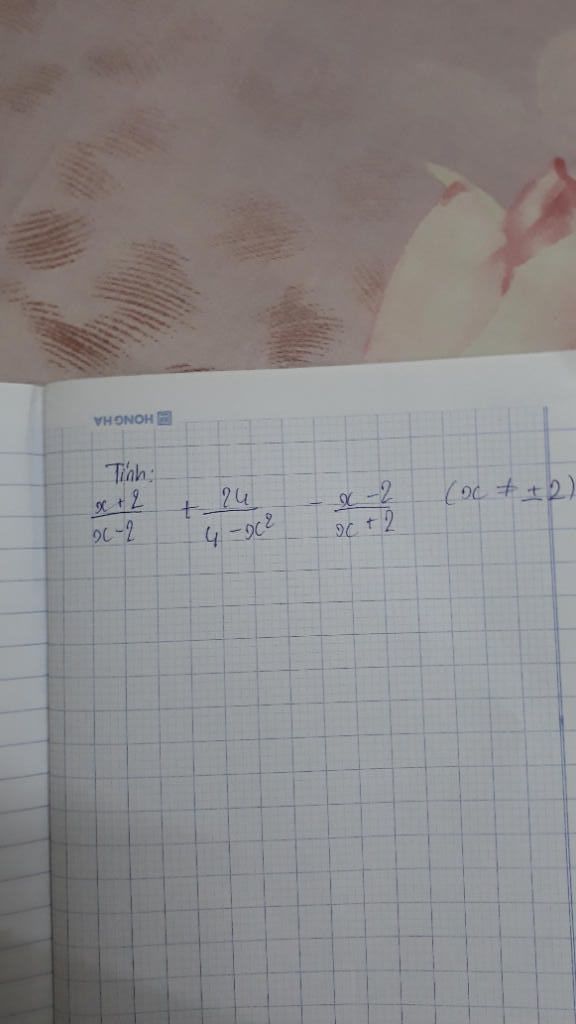 HONG HA
Tính:
x+2/x-2 + 24/4-x² - x-2/x+2 (x ≠ ±2)